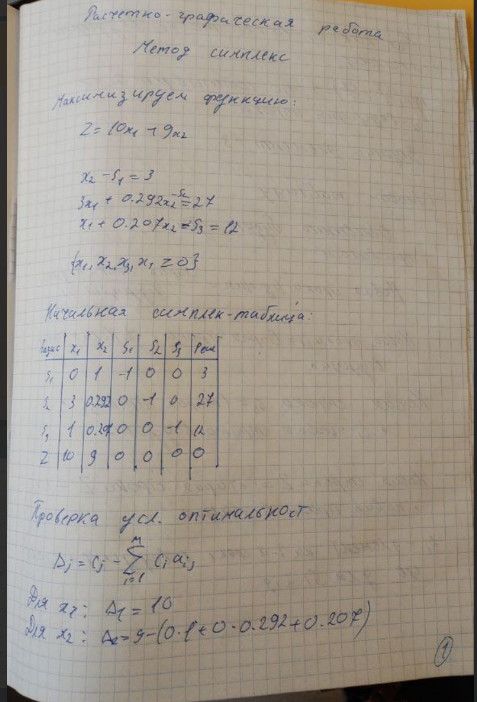 Расчетно-графическая работа
Метод симплекс
Максимизируем функцию:
Z = 10x1 + 9x2
x2 - S1 = 3
3x1 + 0.292x2 - S2 = 27
x1 + 0.207x2 - S3 = 12
{x1, x2, x3, x1 = 03
Начальная симплек-таблица:
Базис x1 x2 S1 S2 S3 Реш
S1 0 1 -1 0 0 3
S2 3 0.292 0 -1 0 27
S3 1 0.207 0 0 -1 12
Z 10 9 0 0 0 0
Проверка усл. оптимальност
Δj = Cj - m∑i=1 Ci aij
Для x1: Δ1 = 10
Для x2: Δ2 = 9-(0·1+0·0.292+0.207)
1